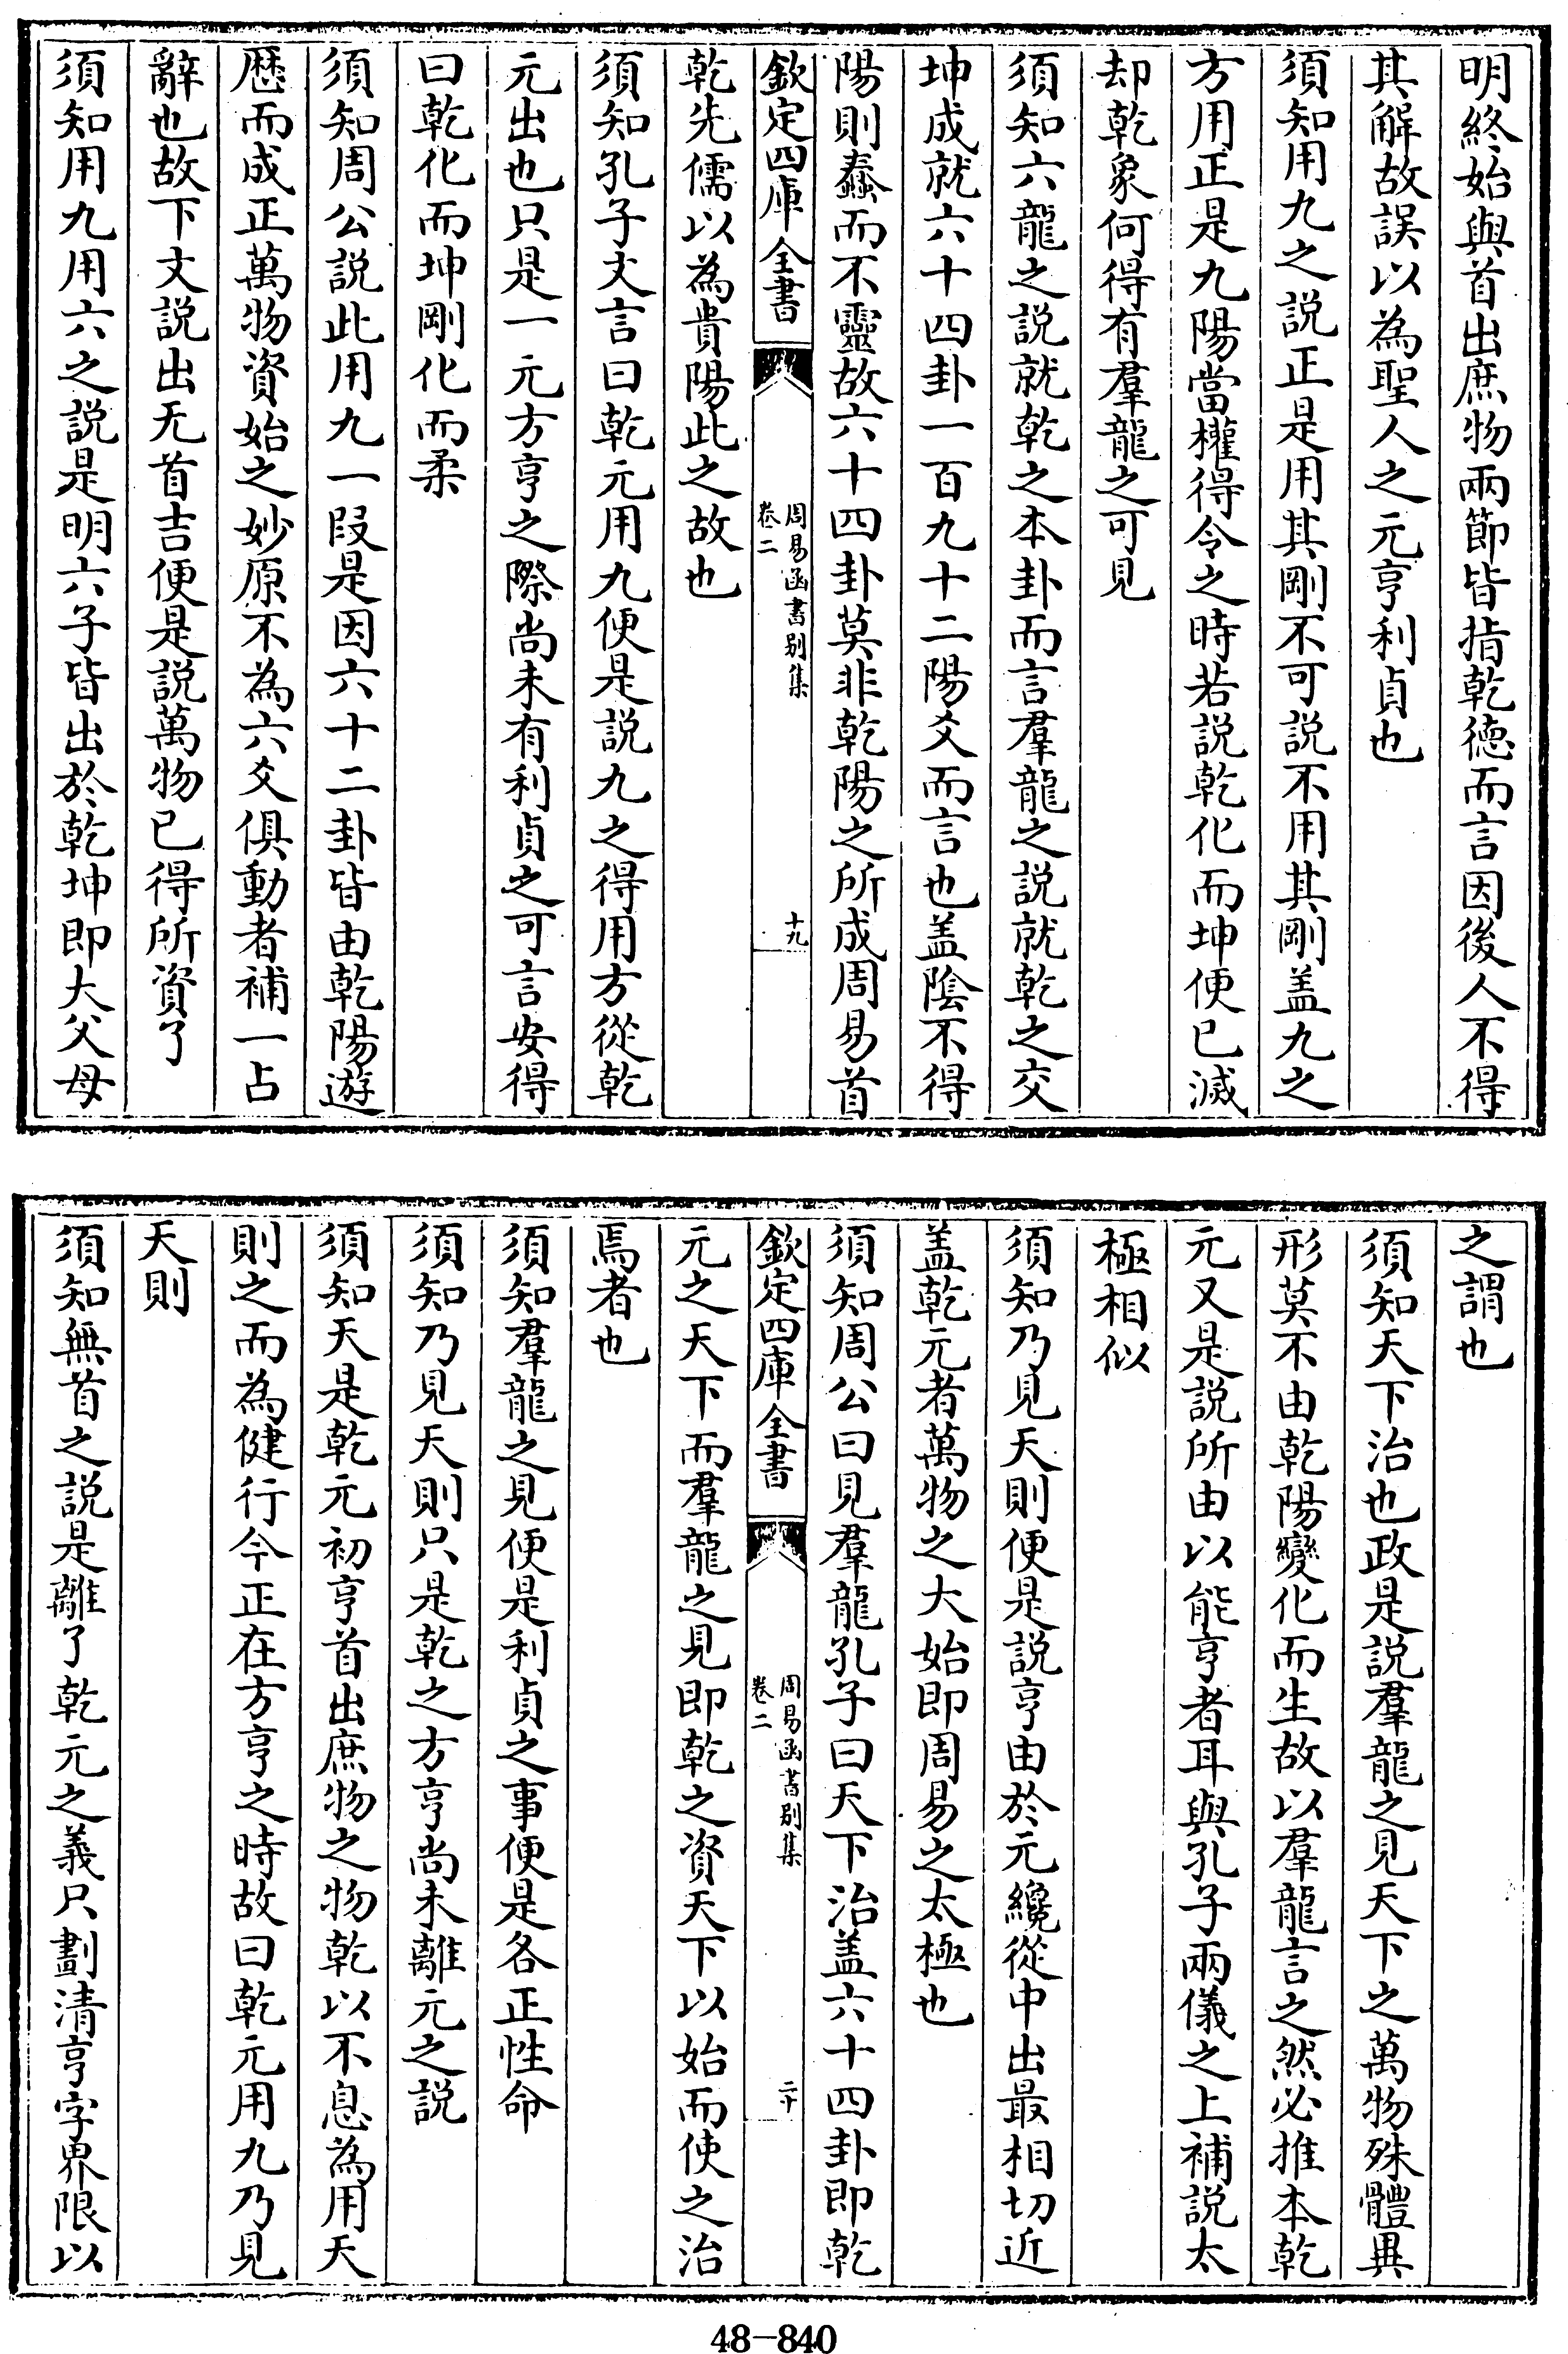 明終始與首出庶物兩節皆指乾徳而言因後人不得
其解故誤以為聖人之元亨利貞也
須知用九之説正是用其剛不可説不用其剛盖九之
方用正是九陽當權得令之時若説乾化而坤便已滅
却乾象何得有羣龍之可見
須知六龍之説就乾之本卦而言羣龍之説就乾之交
坤成就六十四卦一百九十二陽爻而言也盖陰不得
陽則蠢而不靈故六十四卦莫非乾陽之所成周易首
欽定四庫全書
周易函書别集
卷二
十九
乾先儒以為貴陽此之故也
須知孔子文言曰乾元用九便是説九之得用方從乾
元出也只是一元方亨之際尚未有利貞之可言安得
曰乾化而坤剛化而柔
須知周公説此用九一段是因六十二卦皆由乾陽遊
歴而成正萬物資始之妙原不為六爻俱動者補一占
辭也故下文説出无首吉便是説萬物已得所資了
須知用九用六之説是明六子皆出於乾坤即大父母
之謂也
須知天下治也政是説羣龍之見天下之萬物殊體異
形莫不由乾陽變化而生故以羣龍言之然必推本乾
元又是説所由以能亨者耳與孔子兩儀之上補説太
極相似
須知乃見天則便是説亨由於元纔從中出最相切近
盖乾元者萬物之大始即周易之太極也
須知周公曰見羣龍孔子曰天下治盖六十四卦即乾
欽定四庫全書
周易函書别集
卷二
二十
元之天下而羣龍之見即乾之資天下以始而使之治
焉者也
須知羣龍之見便是利貞之事便是各正性命
須知乃見天則只是乾之方亨尚未離元之説
須知天是乾元初亨首出庶物之物乾以不息為用天
則之而為健行今正在方亨之時故曰乾元用九乃見
天則
須知無首之説是離了乾元之義只劃清亨字界限以
48-840